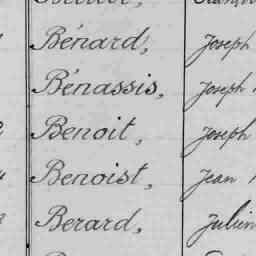 Bénard, Joseph
Bénassis, Joseph
Benoit, Joseph
Benoist, Jean
Berard, Julien